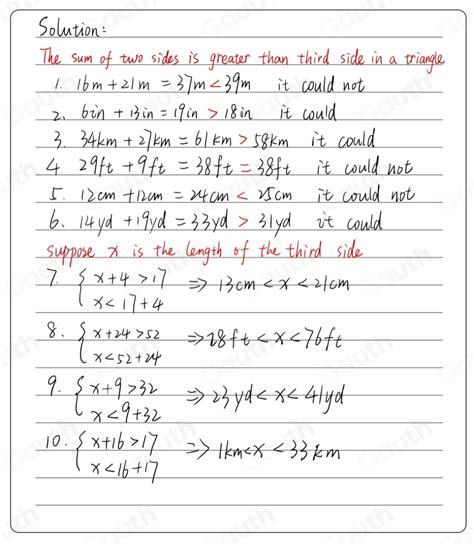 Solution:
The sum of two sides is greater than third side in a triangle
1. 16m + 21m = 37m < 39m it could not
2. 6in + 13in = 19in > 18in it could
3. 34km + 27km = 61km > 58km it could
4. 29ft + 9ft = 38ft = 38ft it could not
5. 12cm + 12cm = 24cm < 25cm it could not
6. 14yd + 19yd = 33yd > 31yd it could
suppose x is the length of the third side
7. { x + 4 > 17
x < 17 + 4 ⇒ 13cm < x < 21cm
8. { x + 24 > 52
x < 52 + 24 ⇒ 28ft < x < 76ft
9. { x + 9 > 32
x < 9 + 32 ⇒ 23yd < x < 41yd
10. { x + 16 > 17
x < 16 + 17 ⇒ 1km < x < 33km
Gauth